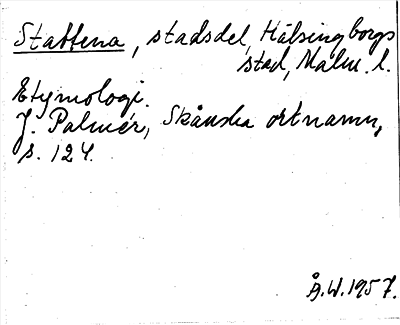 Stattena, stadsdel, Hälsingborgs
stad, Malm. l.
Etymologi.
J. Palmér, Skånska ortnamn,
s. 124.
Å.W.1957.